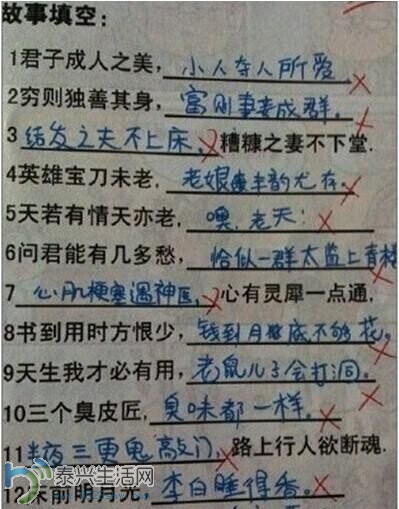 故事填空：
1君子成人之美，小人夺人所爱。
2穷则独善其身，富则妻妾成群。
3结发之夫不上床，糟糠之妻不下堂.
4英雄宝刀未老，老娘丰韵尤存。
5天若有情天亦老，噢，老天！
6问君能有几多愁，恰似一群太监上青楼
7心肌梗塞遇神医，心有灵犀一点通.
8书到用时方恨少，钱到月底不够花。
9天生我才必有用，老鼠儿子会打洞.
10三个臭皮匠，臭味都一样。
11半夜三更鬼敲门，路上行人欲断魂.
12床前明月光，李白睡得香。
泰兴生活网